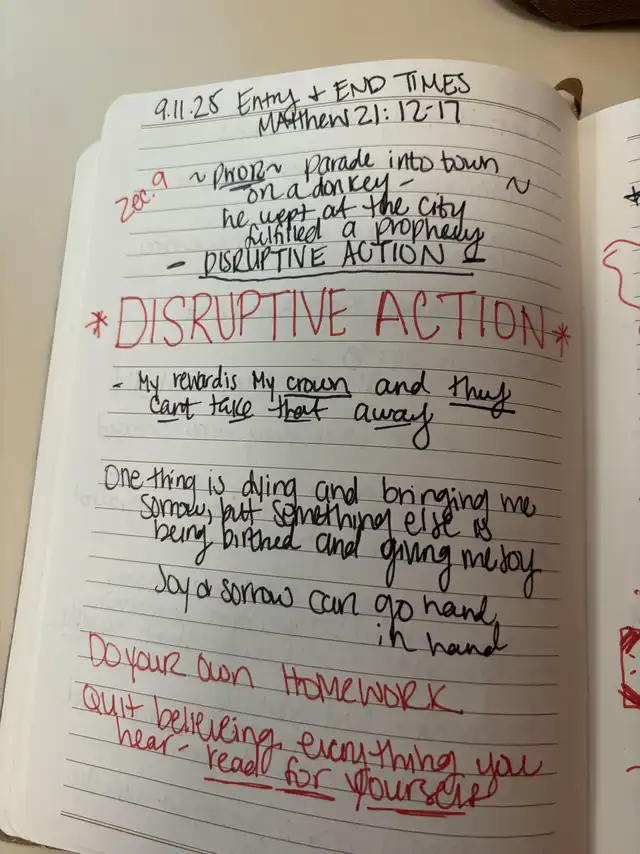 9.11.25 Entry + END TIMES
Matthew 21: 12-17
Zec. 9
~ PRIOR ~ parade into town
on a donkey - ~
he wept at the city
fulfilled a prophecy
- DISRUPTIVE ACTION
* DISRUPTIVE ACTION *
- My reward is My crown and they
cant take that away
One thing is dying and bringing me
sorrow, but something else is
being birthed and giving me Joy
Joy & sorrow can go hand
in hand
DO YOUR OWN HOMEWORK
Quit believeing everything you
hear - read for yourself